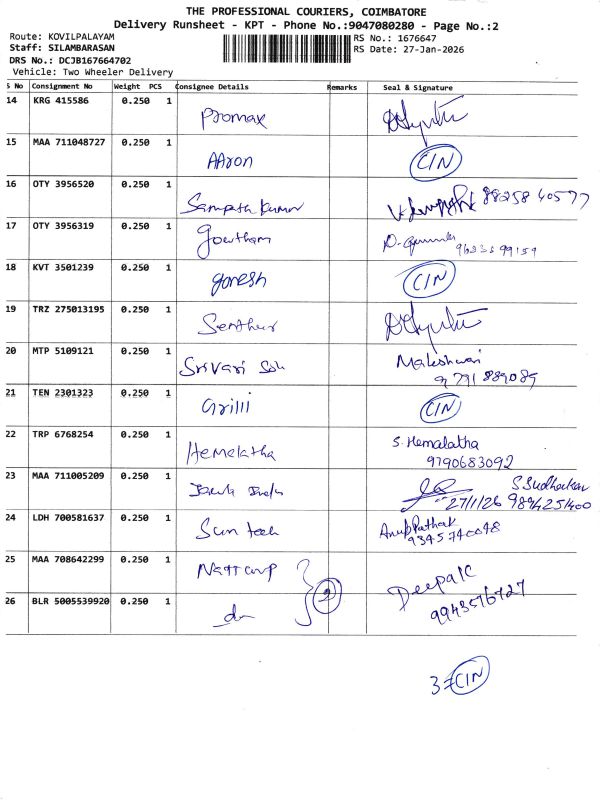 THE PROFESSIONAL COURIERS, COIMBATORE
Delivery Runsheet - KPT - Phone No.:9047080280 - Page No.:2
Route: KOVILPALAYAM
Staff: SILAMBARASAN
RS No.: 1676647
RS Date: 27-Jan-2026
DRS No.: DCJB167664702
Vehicle: Two Wheeler Delivery
S No Consignment No Weight PCS Consignee Details Remarks Seal & Signature
14 KRG 415586 0.250 1 Promax
15 MAA 711048727 0.250 1 AAron CIN
16 OTY 3956520 0.250 1 Sampath Kumar 88258 40577
17 OTY 3956319 0.250 1 Gowtham
18 KVT 3501239 0.250 1 ganesh CIN
19 TRZ 275013195 0.250 1 Senthur
20 MTP 5109121 0.250 1 Srivari Maheshwari
21 TEN 2301323 0.250 1 Grilli CIN
22 TRP 6768254 0.250 1 Hemelatha S. Hemalatha
9790683092
23 MAA 711005209 0.250 1 S Sudhakar
27/1/26 9894251400
24 LDH 700581637 0.250 1 Sun tech Anup Pathak
9345740048
25 MAA 708642299 0.250 1 Deepak
26 BLR 5005539920 0.250 1 do 2 9943576727
3 = CIN